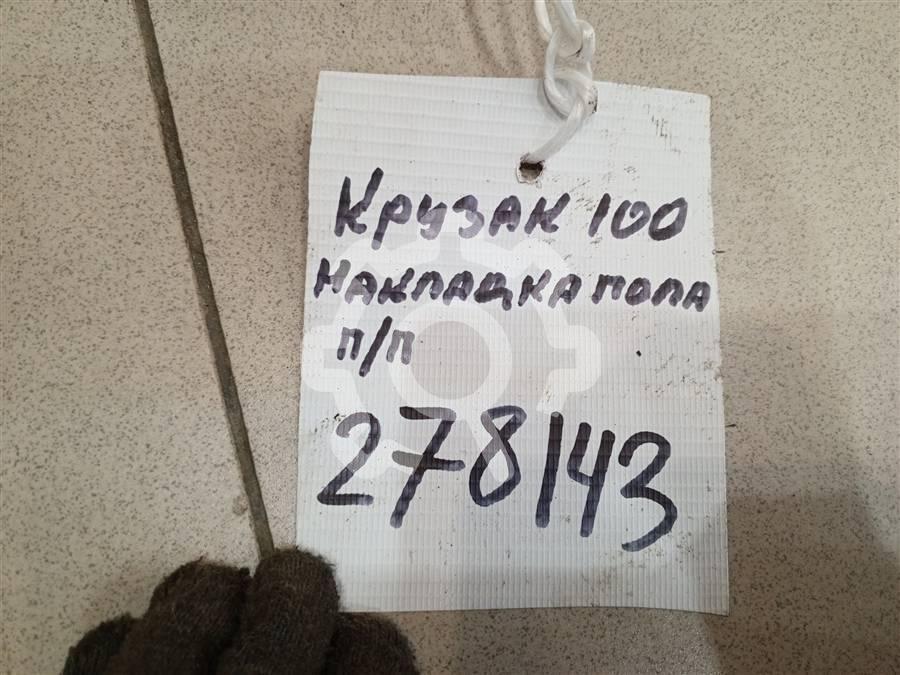 Крузак 100
Накладка пола
п/п
278143